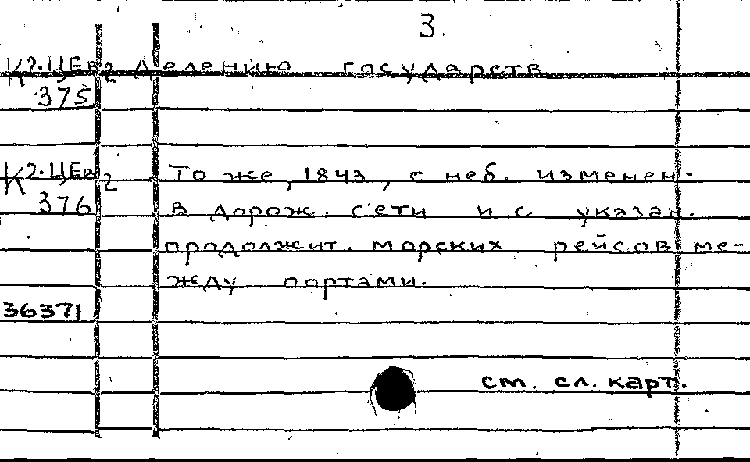 3
К2-ЦЕв/2 делению государств
375
К2-ЦЕв/2 То же, 1843, с неб. изменен.
376 в дорож. сети и с указан.
продолжит. морских рейсов ме-
жду портами.
36371
см. сл. карт.